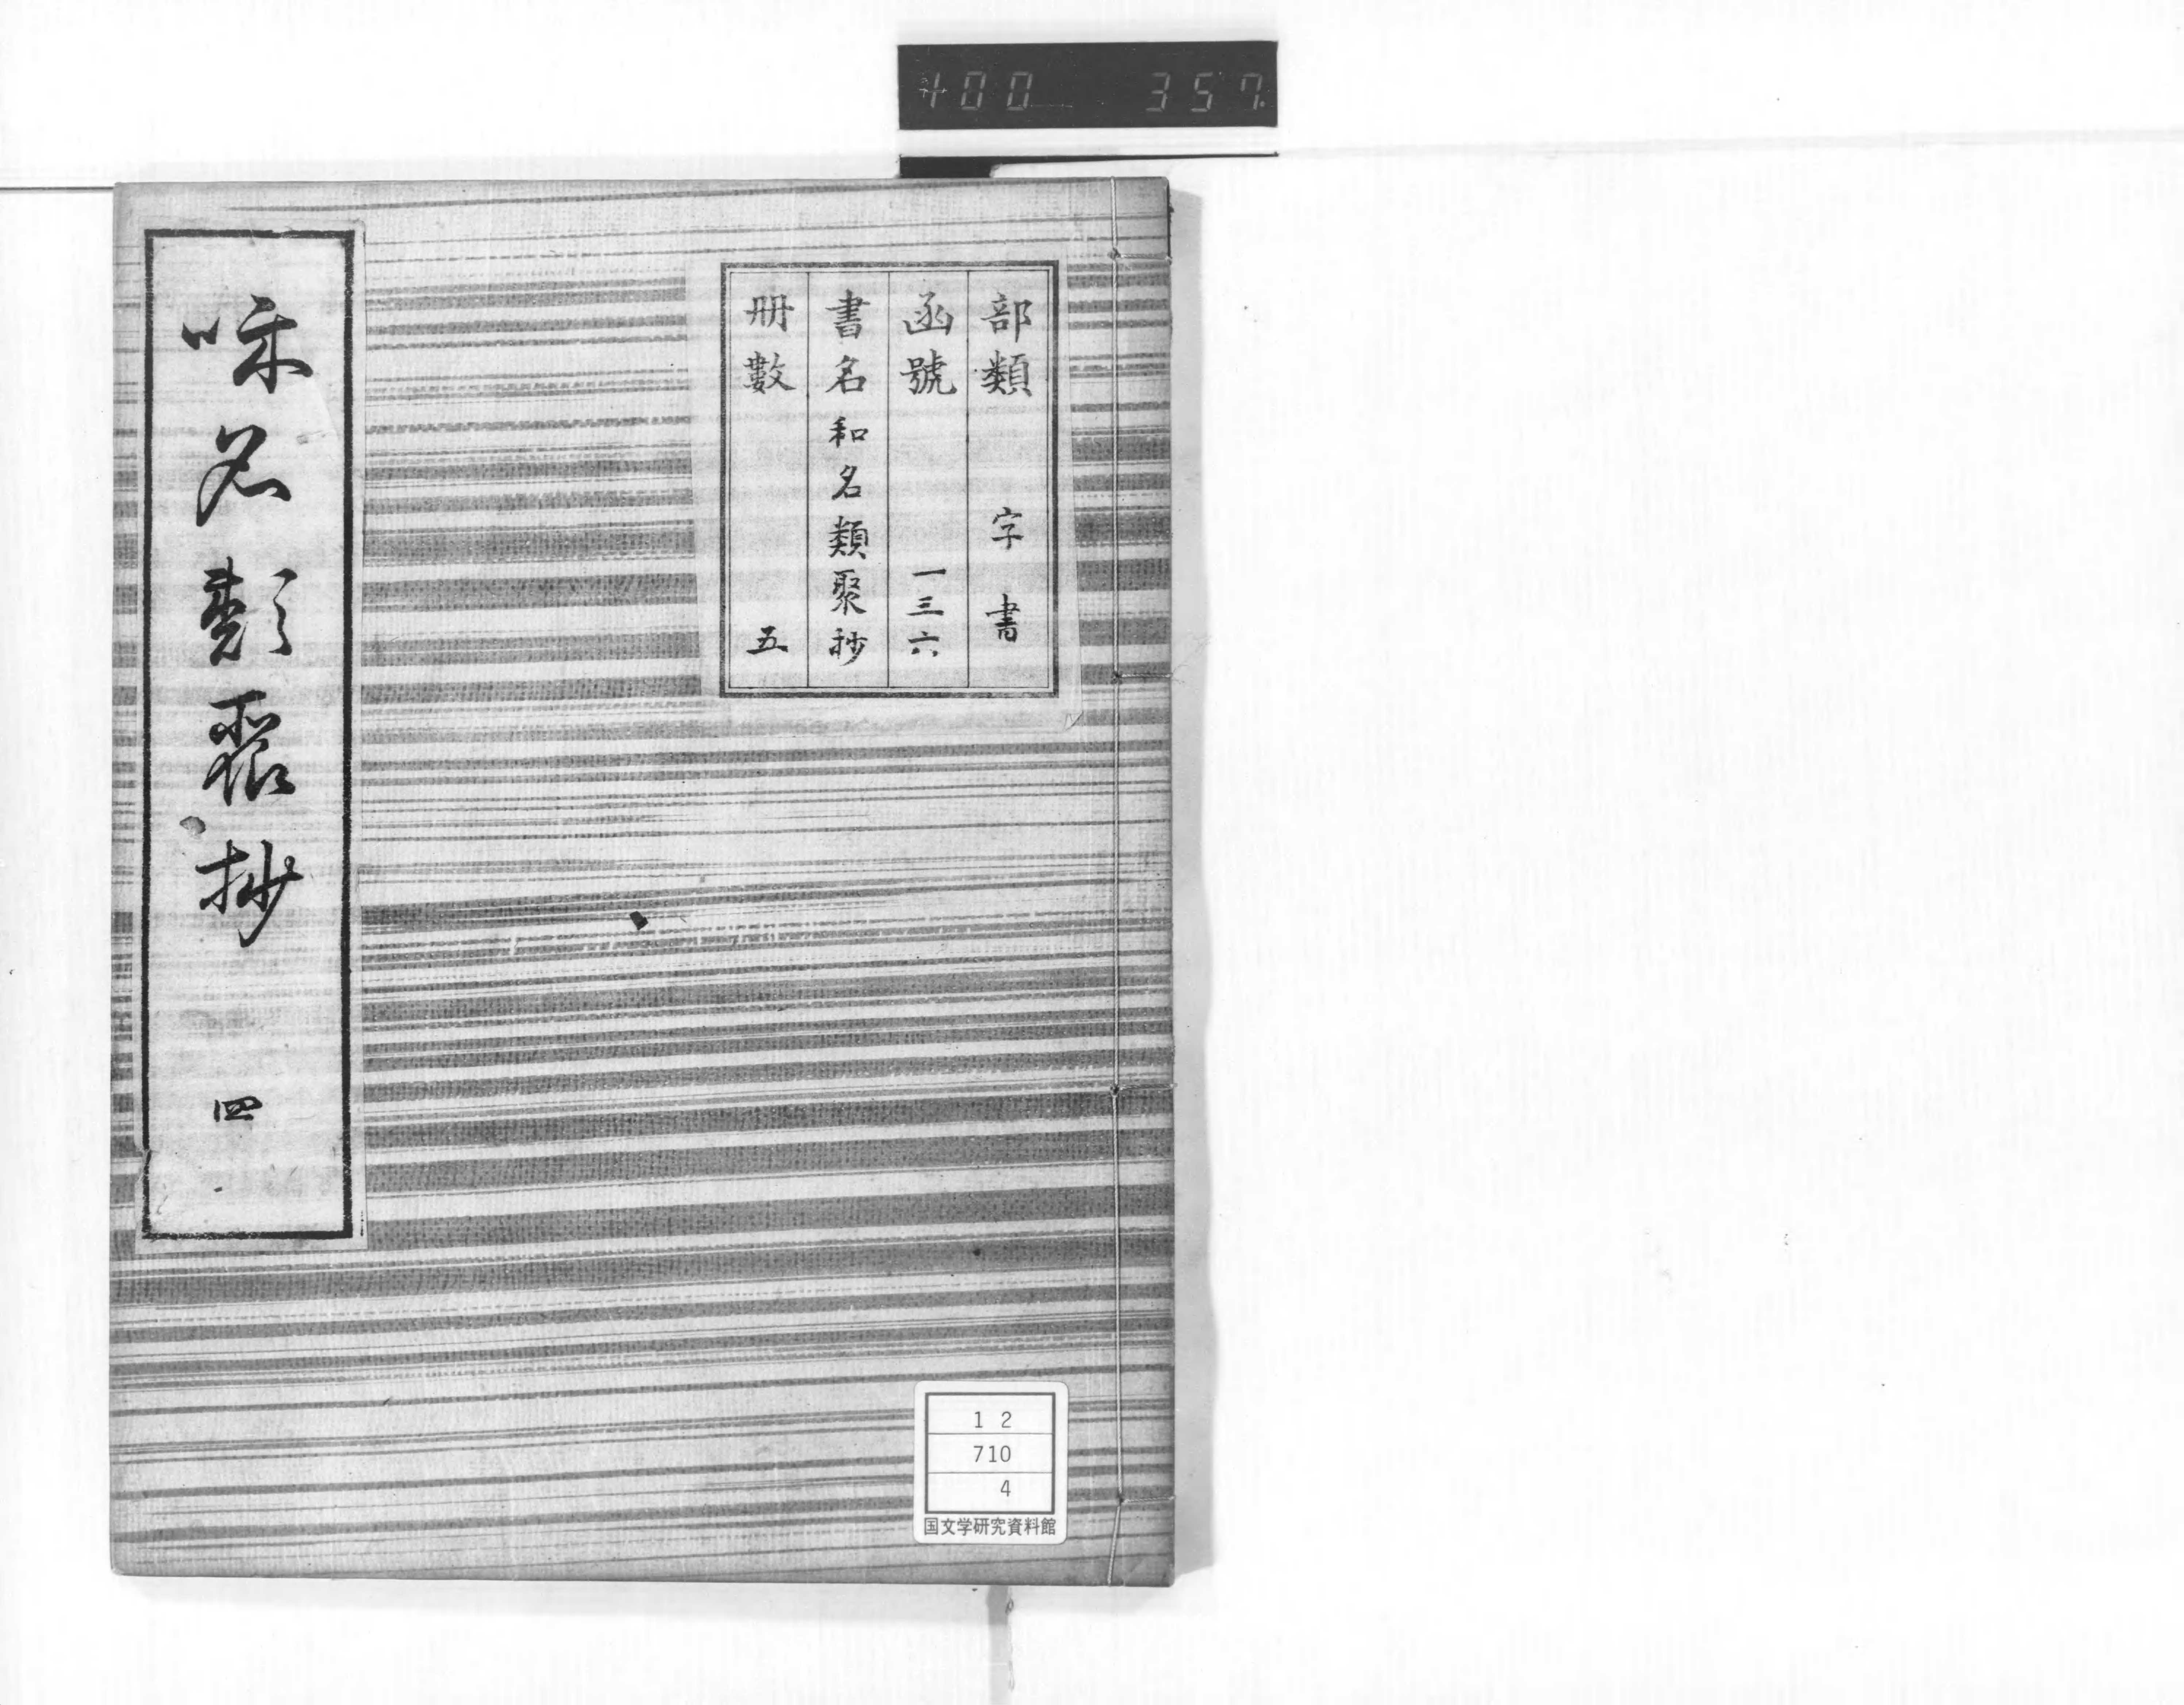 400 357.
部類 字書
函號 一三六
書名 和名類聚抄
册數 五
咊名類聚抄 四
1 2
710
4
国文学研究資料館